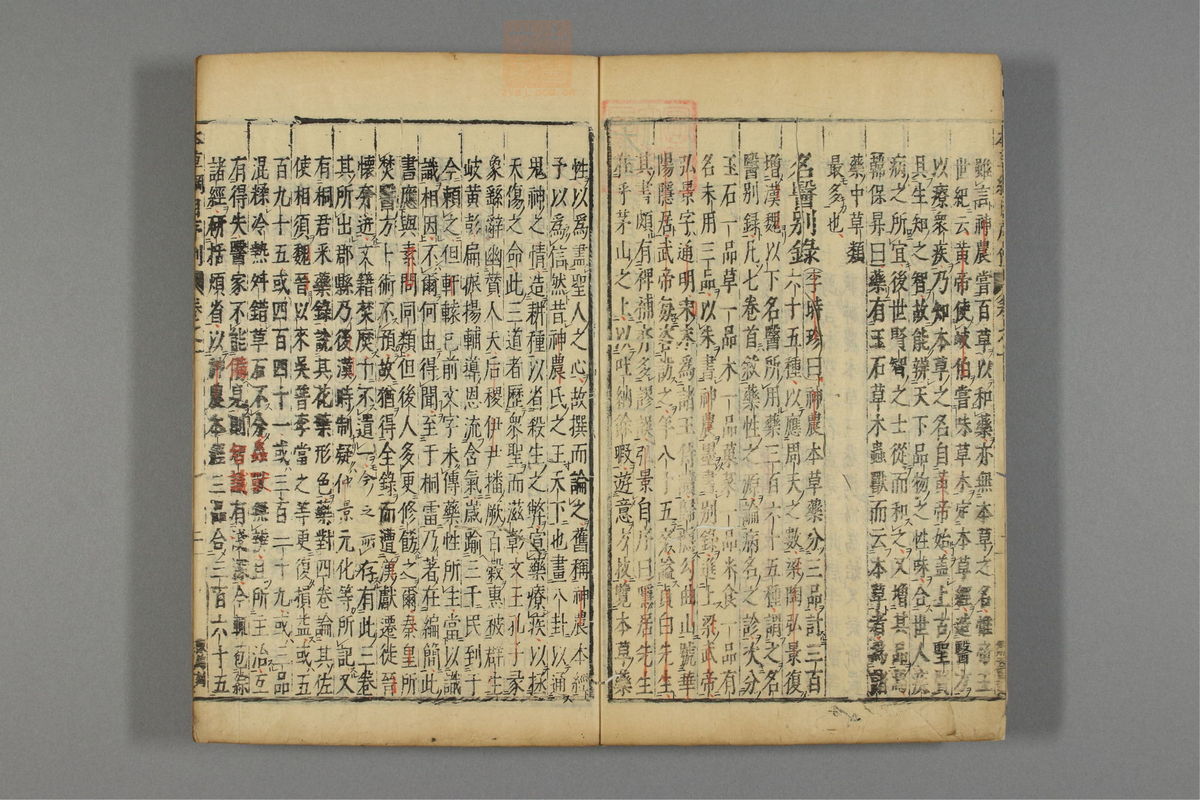 雖言神農嘗百草以和藥亦無本草之名惟帝王
世紀云黃帝使岐伯嘗味草木定本草經造醫方
以療衆疾乃知本草之名自黃帝始蓋上古聖賢
具生知之智故能辨天下品物之性味合世人疾
病之所宜後世賢智之士從而和之又增其品焉
韓保昇曰藥有玉石草木蟲獸而云本草者爲諸
藥中草類
最多也
名醫別錄李時珍曰神農本草藥分三品計三百
六十五種以應周天之數梁陶弘景復
增漢魏以下名醫所用藥三百六十五種謂之名
醫別録凡七卷首叙藥性之源論病名之診次分
玉石一品草一品木一品菓菜一品米食一品有
名未用三品以朱書神農墨書別錄進上梁武帝
弘景字通明宋末爲諸王侍讀歸隱勾曲山號華
陽隱居武帝每咨訪之年八十五卒謚貞白先生
其書頗有裨補亦多謬誤弘景自序曰隱居先生
在乎茅山之上以吐納餘暇遊意方技覽本草藥
性以爲盡聖人之心故撰而論之舊稱神農本經
予以爲信然昔神農氏之王天下也畫八卦以通
鬼神之情造耕種以省殺生之弊宣藥療疾以拯
夭傷之命此三道者歷衆聖而滋彰文王孔子彖
象繇辭幽贊人天后稷伊尹播厥百穀惠被群生
岐黃彭扁振揚輔導恩流含氣歲踰三千民到于
今賴之但軒轅已前文字未傳藥性所主當以識
識相因不爾何由得聞至于桐雷乃著在編簡此
書應與素問同類但後人多更修飭之爾秦皇所
焚醫方卜術不預故猶得全錄而遭漢獻遷徙晉
懷奔迸文籍焚靡千不遺一今之所存有此三卷
其所出郡縣乃後漢時制疑仲景元化等所記又
有桐君采藥錄說其花葉形色藥對四卷論其佐
使相須魏晉以來吳普李當之等更復損益或五
百九十五或四百四十一或三百一十九或三品
混糅冷熱舛錯草石不分蟲獸無辨且所主治互
有得失醫家不能備見則智識有淺深今輒苞綜
諸經研括煩省以神農本經三品合三百六十五